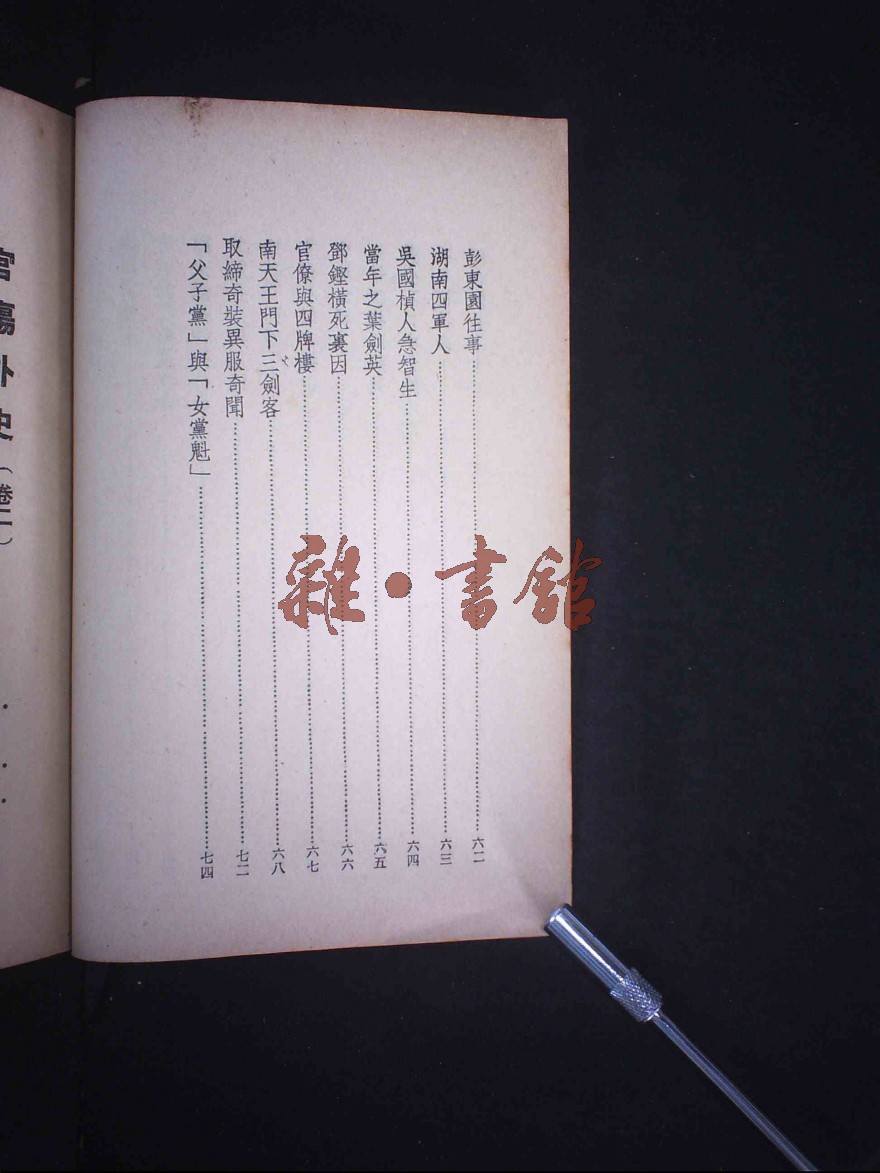 彭東園往事⋯⋯六二
湖南四軍人⋯⋯六三
吳國楨人急智生⋯⋯六四
當年之葉劍英⋯⋯六五
鄧鏗橫死裏因⋯⋯六六
官僚與四牌樓⋯⋯六七
南天王門下三劍客⋯⋯六八
取締奇裝異服奇聞⋯⋯七二
「父子黨」與「女黨魁」⋯⋯七四
外史(卷二)
雜·書館